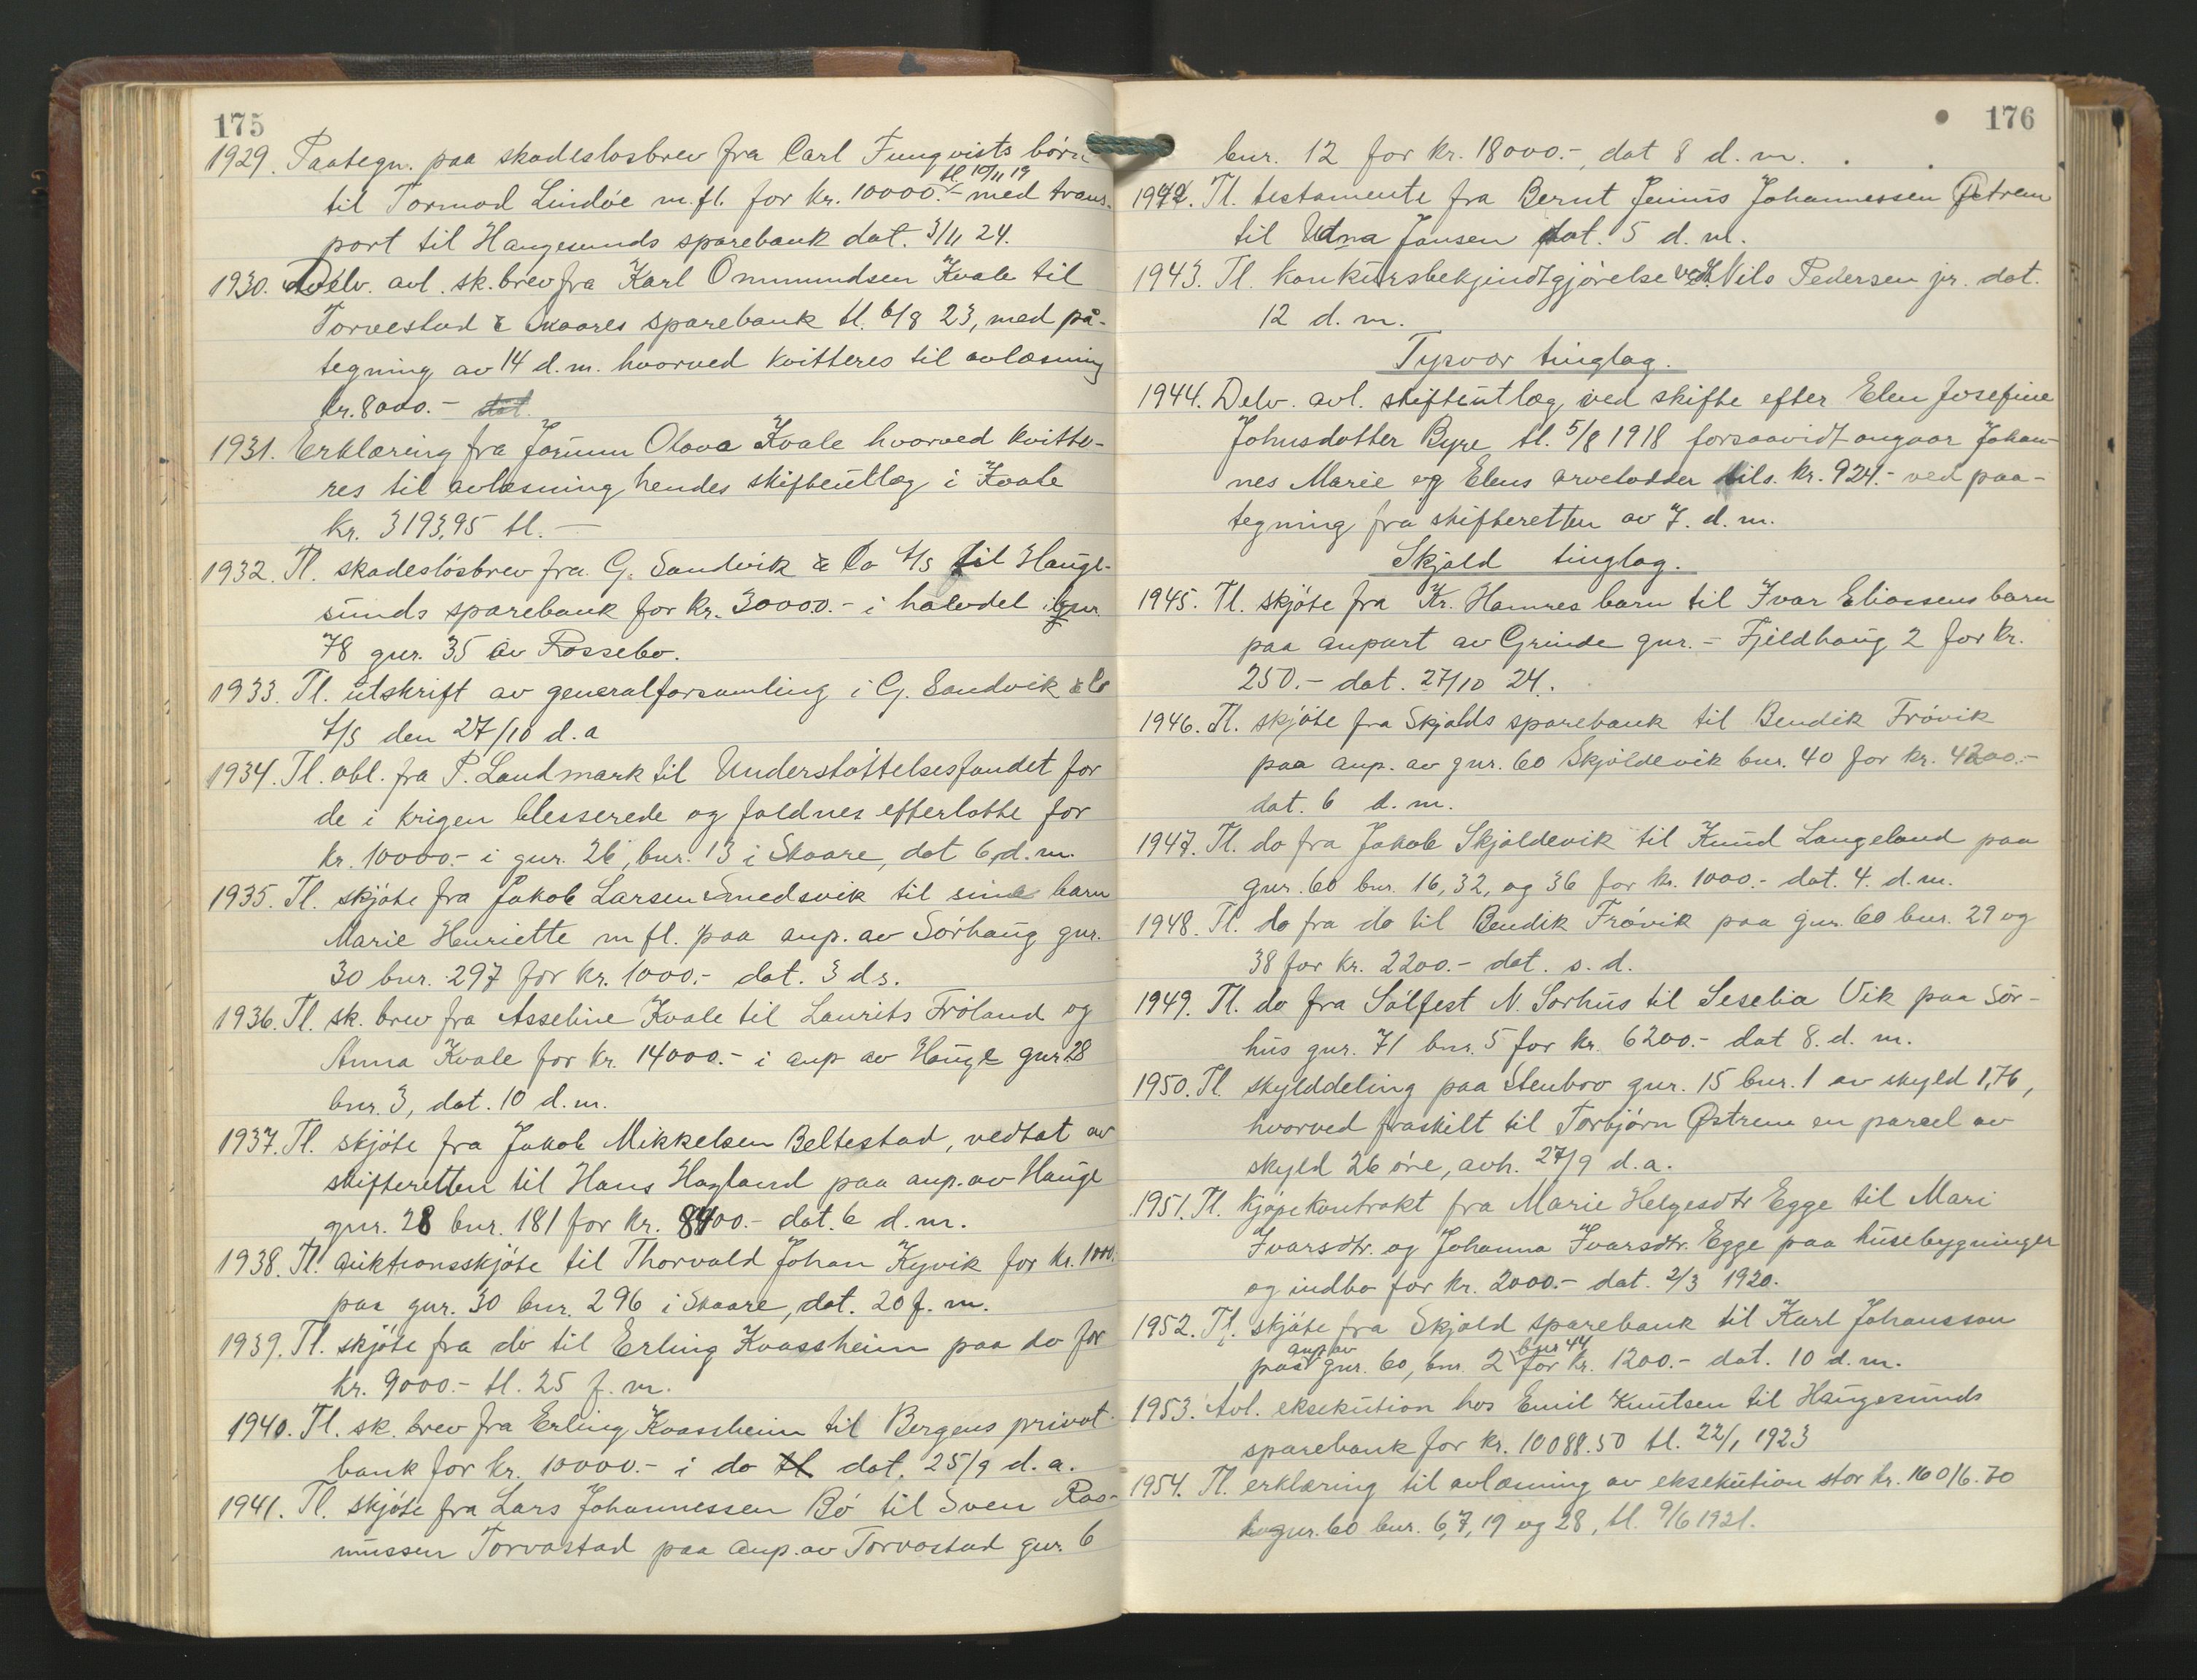 175
1929. Paategn. paa skadeslosbrev fra Carl Fungvists børn
tl. 10/11 19
til Tormod Lindøe m.fl. for kr. 10000.- med trans-
port til Haugesunds sparebank dat. 3/11 24.
1930. Delv. avl. sk. brev fra Karl Ommundsen Kvale til
Torvestad & Skaares sparebank tl. 6/8 23, med på-
tegning av 14 d.m. hvorved kvitteres til avlæsning
kr. 8000.- dat.
1931. Erklæring fra Jorunn Olava Kvale hvorved kvitte-
res til avlæsning hendes skifteutlæg i Kvale
kr. 3193,95 tl. —
1932. Tl. skadesløsbrev fra G. Sandvik & Co A/S til Hauge-
sunds sparebank for kr. 30000.- i halvdel i gnr.
78 gnr. 35 av Rossebo.
1933. Tl. utskrift av generalforsamling i G. Sandvik & Co
A/S den 27/10 d.a
1934. Tl. obl. fra P. Landmark til Understøttelsesfondet for
de i krigen blesserede og faldnes efterlatte for
kr. 10000.- i gnr. 26, bnr. 13 i Skaare, dat 6 d.m.
1935. Tl. skjøte fra Jakob Larsen Smedsvik til sine barn
Marie Henriette m fl. paa anp. av Sørhaug gnr.
30 bnr. 297 for kr. 1000.- dat. 3 ds.
1936. Tl. sk. brev fra Asseline Kvale til Laurits Frøland og
Anna Kvale for kr. 14000.- i anp av Hauge gnr 28
bnr. 3, dat. 10 d.m.
1937. Tl. skjøte fra Jakob Mikkelsen Beltestad, vedtat av
skifteretten til Hans Hagland paa anp. av Hauge
gnr. 28 bnr. 181 for kr. 8400.- dat. 6 d.m.
1938. Tl. auktionsskjøte til Thorvald Johan Kyvik for kr. 1000.
paa gnr. 30 bnr. 296 i Skaare, dat. 20 f.m.
1939. Tl. skjøte fra do til Erling Kvassheim paa do for
kr. 9000.- tl. 25 f.m.
1940. Tl. sk. brev fra Erling Kvassheim til Bergens privat-
bank for kr. 10000.- i do tl dat. 25/9 d.a.
1941. Tl. skjøte fra Lars Johannessen Bø til Sven Ras-
mussen Torvastad paa anp. av Torvastad gnr. 6
176
bnr. 12 for kr. 18000.-, dat 8 d.m.
1942. Tl. testamente fra Bernt Johannessen Østrem
til Edna Jansen dat. 5 d.m.
1943. Tl. konkursbekjendtgjørelse ved Nils Pedersen jr. dat.
12 d.m.
Tysvær tinglag.
1944. Delv. avl. skifteutlæg ved skifte efter Elen Josefine
Johnsdatter Byre tl. 5/8 1918 forsaavidt angaar Johan-
nes Marie og Elens arvelodder tils. kr. 924.- ved paa-
tegning fra skifteretten av 7. d.m.
Skjold tinglag.
1945. Tl. skjøte fra Kr. Hamres barn til Ivar Eliassens barn
paa anpart av Grinde gnr. - Fjeldhaug 2 for kr.
250.- dat. 27/10 24.
1946. Tl. skjøte fra Skjolds sparebank til Bendik Frøvik
paa anp. av gnr. 60 Skjoldevik bnr. 40 for kr. 4200.-
dat. 6 d.m.
1947. Tl. do fra Jakob Skjoldevik til Knud Langeland paa
gnr. 60 bnr. 16, 32, og 36 for kr. 1000.- dat. 4. d.m.
1948. Tl. do fra do til Bendik Frøvik paa gnr. 60 bnr. 29 og
38 for kr. 2200.- dat. s.d.
1949. Tl. do fra Sølfest N. Sørhus til Seselia Vik paa Sør-
hus gnr. 71 bnr. 5 for kr. 6200.- dat 8. d.m.
1950. Tl. skylddeling paa Stenbro gnr. 15 bnr. 1 av skyld 1,76,
hvorved fraskilt til Torbjørn Østrem en parcel av
skyld 26 øre, avh. 27/9 d.a.
1951. Tl. kjøpekontrakt fra Marie Helgesdtr Egge til Mari
Ivarsdtr. og Johanna Ivarsdtr. Egge paa husebygninger
og indbo for kr. 2000.- dat. 2/3 1920.
1952. Tl. skjøte fra Skjold sparebank til Karl Johansson
anp av bnr 44
paa gnr. 60, bnr. 2 for kr. 1200.- dat. 10 d.m.
1953. Avl. eksekution hos Emil Knutsen til Haugesunds
sparebank for kr. 10088.50 tl. 22/1 1923
1954. Tl. erklæring til avlæsning av eksekution stor kr. 16016.70
gnr. 60 bnr. 6, 7, 19 og 28, tl. 9/6 1921.